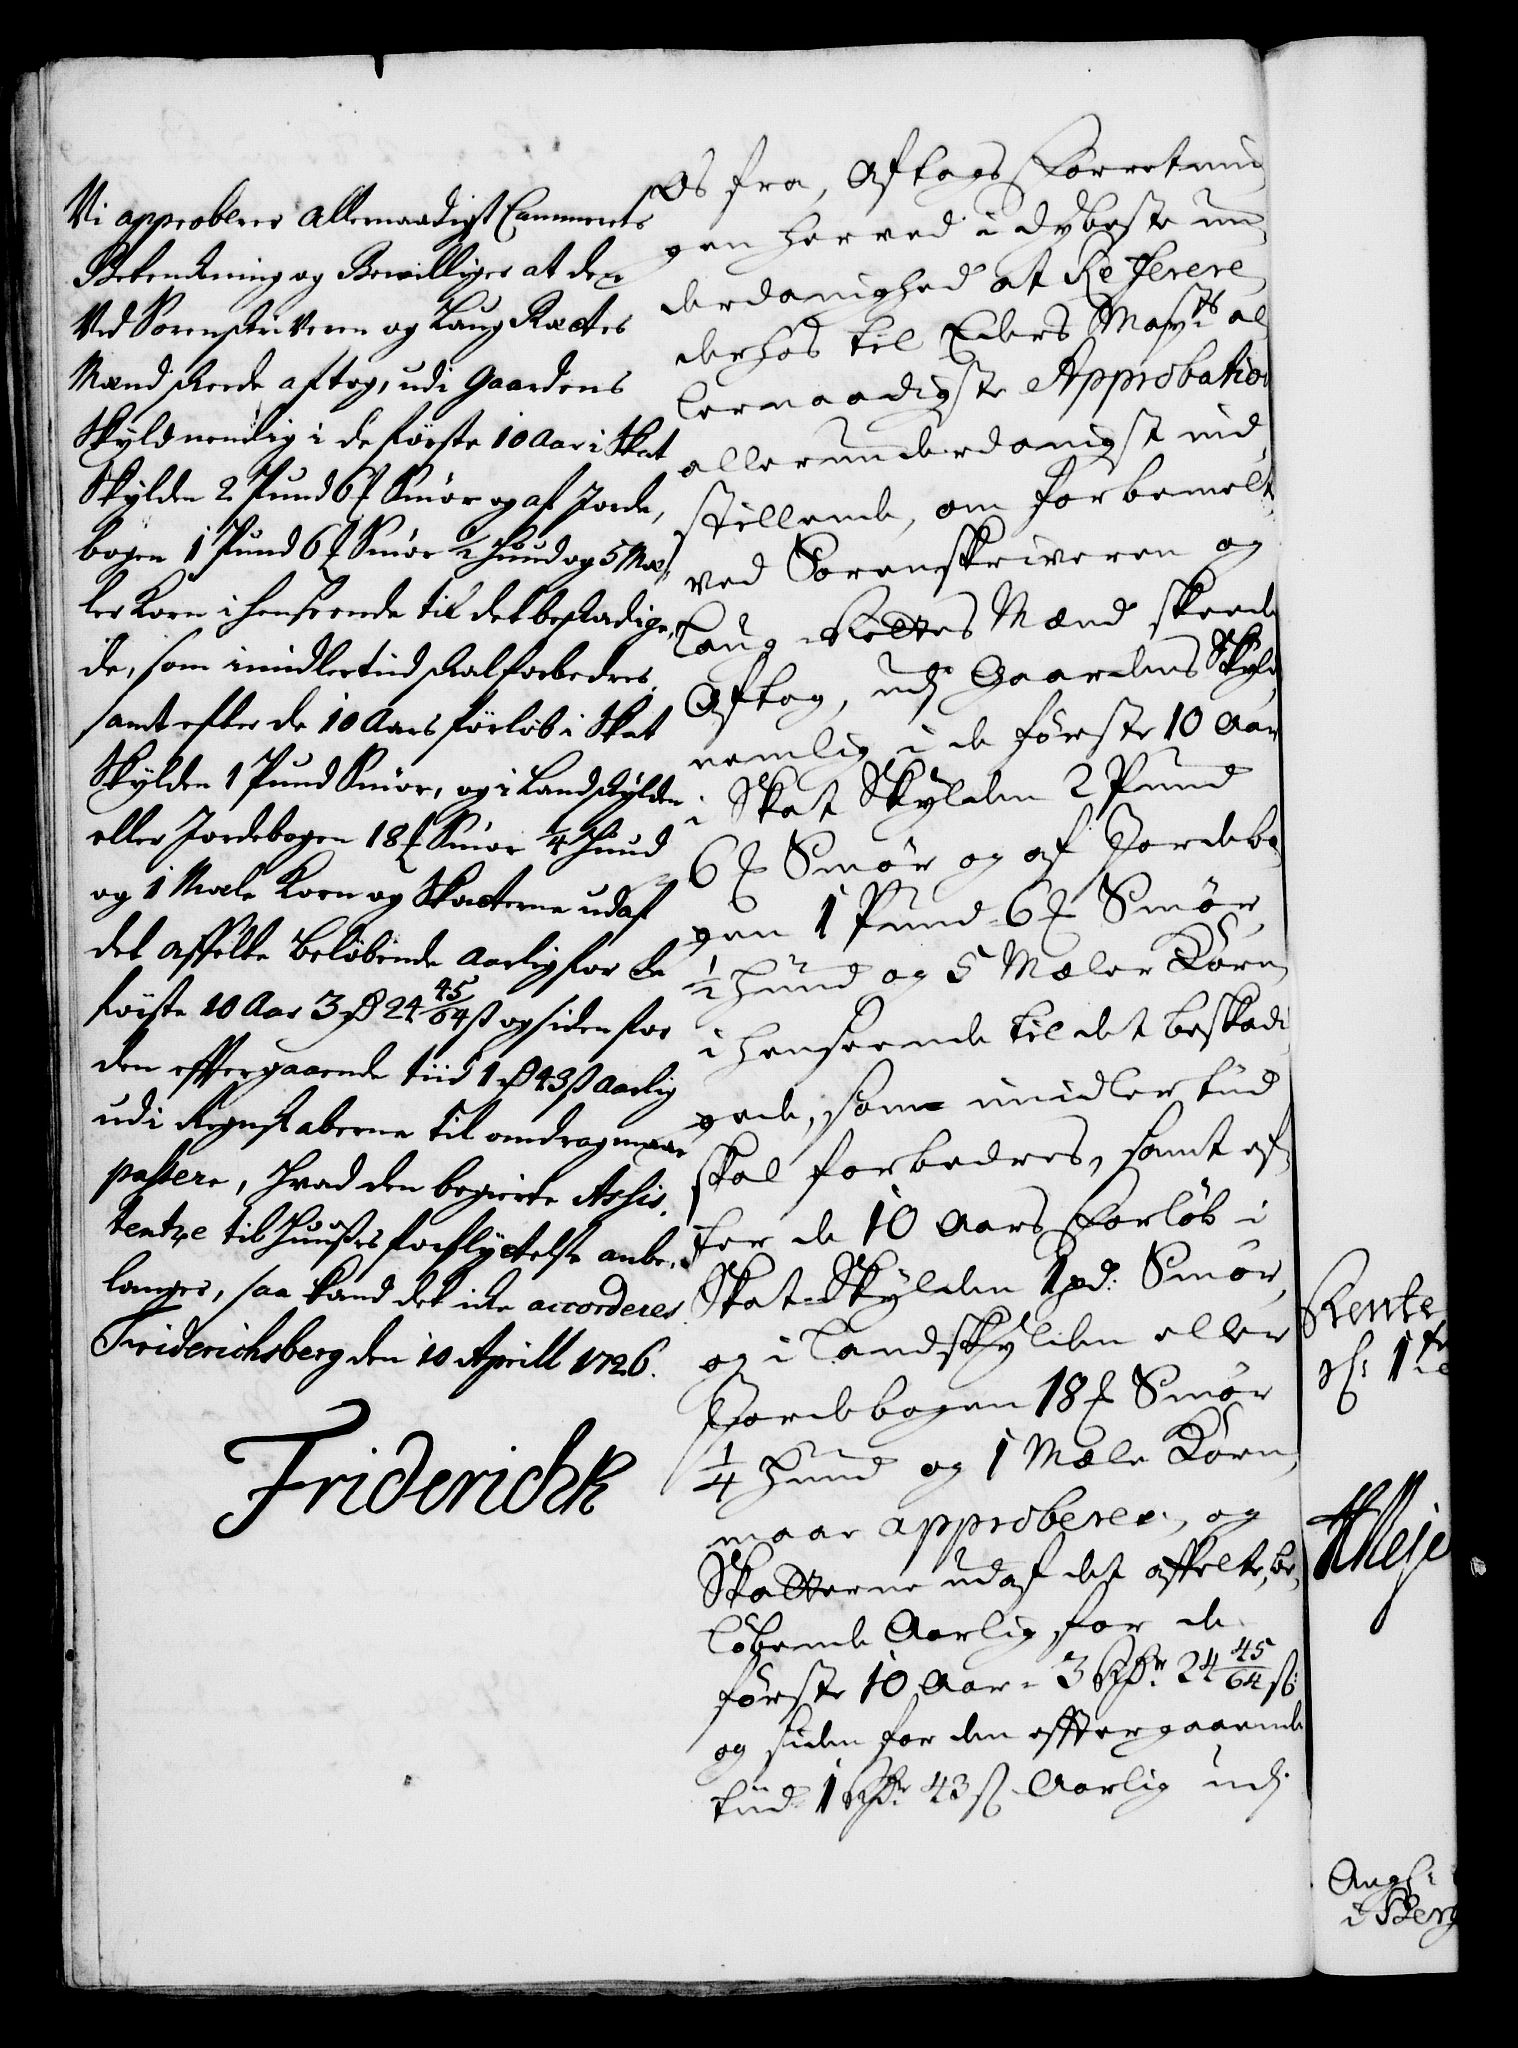 Vi approberer allernaadigst Cammerets
Betenckning og Bevilliger at det
Ved Sorenskriveren og Laug Rættes
Mænd skeede aftog, udi Gaardens
Skyld nemlig i de første 10 Aar i Skat
Skylden 2 Pund 6 ℔ Smør og af Jorde,
bogen 1 Pund 6 ℔ Smør ½ Huud og 5 Mæ,
ler Korn i henseende til det beskadige,
de, som imidlertid skal forbedres,
samt efter de 10 Aars forløb i Skat
Skylden 1 Pund Smør, og i Landskylden
eller Jordebogen 18 ℔ Smør ¼ Huud
og 1 Mæle Korn og Skatterne udaf
det affelte beløbende aarlig for de
første 10 Aar 3 rd 24 45/64 ß og siden for
den efftergaaende tiid 1 rd 43 ß aarlig
udi Regnskaberne til omdrag maae
passere, Hvad den begierte Assis,
tentze til Huusets forflyttelse anbe,
langer, saa kand det icke accorderes
Friderichsberg den 10 Aprill 1726.
Friderich R
Os fra, Aftags Forretnin
gen herved i dybeste un,
derdanighed at Referere
derhos til Eders Mayts al
lernaadigste Approbation
allerunderdanigst ind
stillende, om forbemelte
ved Sorenskriveren og
Laug-Rettes Mænd skeede
Aftag, udj Gaardens Skyld,
nemlig i de første 10 Aar
i Skat Skylden 2 Pund
6 ℔ Smør og af Jordebo,
gen 1 Pund 6 ℔ Smør
½ Huud og 5 Mæler Korn,
i henseende til det beskadi
gede, som imidlertiid
skal forbedres, samt ef,
ter de 10 Aars Forløb i
Skat-Skylden 1 pd: Smør,
og i Landskylden eller
Jordebogen 18 ℔ Smør
¼ Huud og 1 Mæle Korn,
maae approberes, og
Skatterne udaf det affelte, be,
løbende Aarlig for de
første 10 Aar - 3 Rdr. 24 45/64 ß:
og siden for den efftergaaende
tiid 1 Rdr 43 ß. Aarlig udj
Rente
i Berg